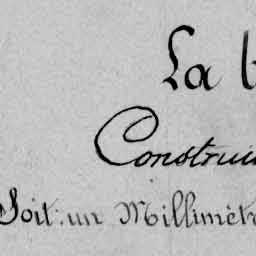 La b
Construi
Soit: un Millimètr